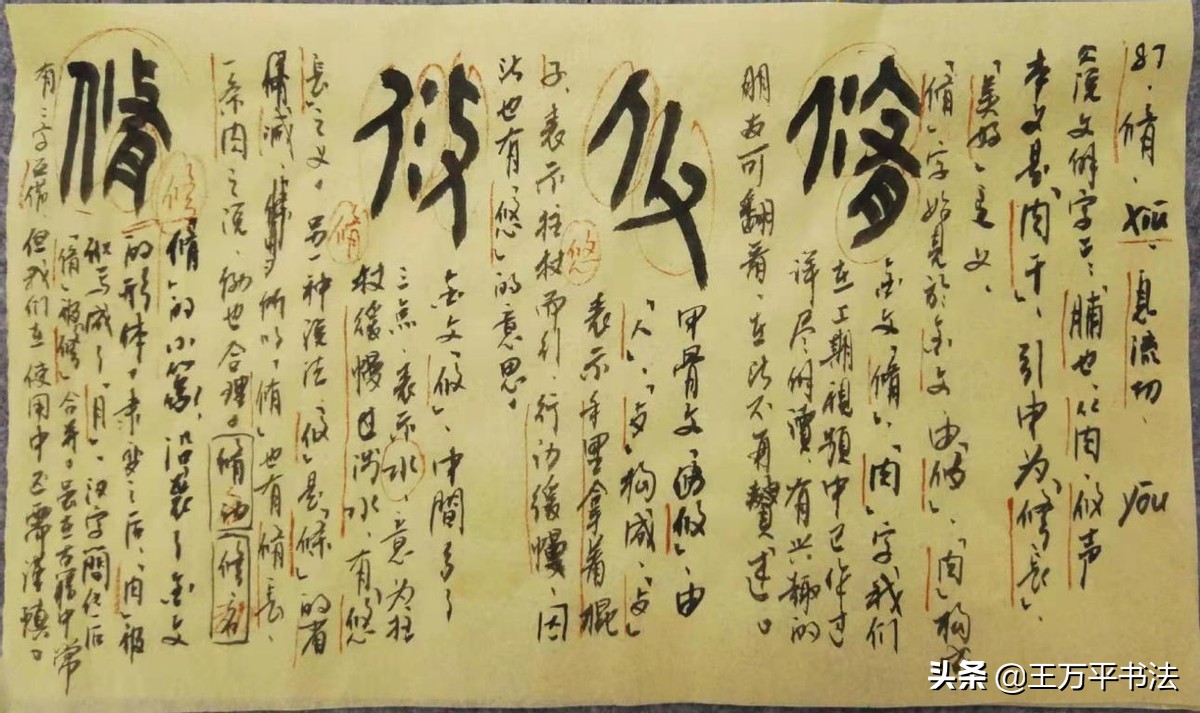 87、脩、xiū、息流切、
you
《说文解字》：「脯也，从肉、攸声」
本义是「肉干」，引申为「修长」、
「美好」之义。
「脩」字始见於金文，由「攸」、「肉」构成
脩
金文「脩」，「肉」字，我们
在上期视频中已作过
详尽的解读，有兴趣的
朋友可翻看，在此不再赘述。
攸
甲骨文「攸」，由
「人」、「攴」构成，「攴」
表示手里拿着棍
子，表示拄杖而行，行动缓慢，因
此也有「悠」的意思。
悠
攸
金文「攸」，中间多了
三点，表示水，意为拄
杖缓慢且涉水，有「悠
长」之义。另一种说法，「攸」是「條」的省
脩
减，所以「脩」也有脩长、
一条肉之说，倒也合理。
脩
修
「脩」的小篆，沿袭了金文
的形体。隶变之后，「肉」被
讹写成了「月」，汉字简化后
「脩」被「修」合并。虽在古籍中常
但我们在使用中还需谨慎。
头条 @王万平书法